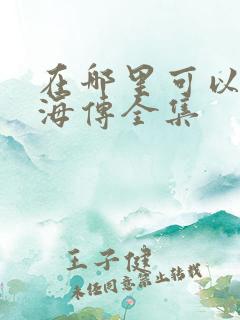 在那里可以
海传全集
王子健
未经同意禁止转载